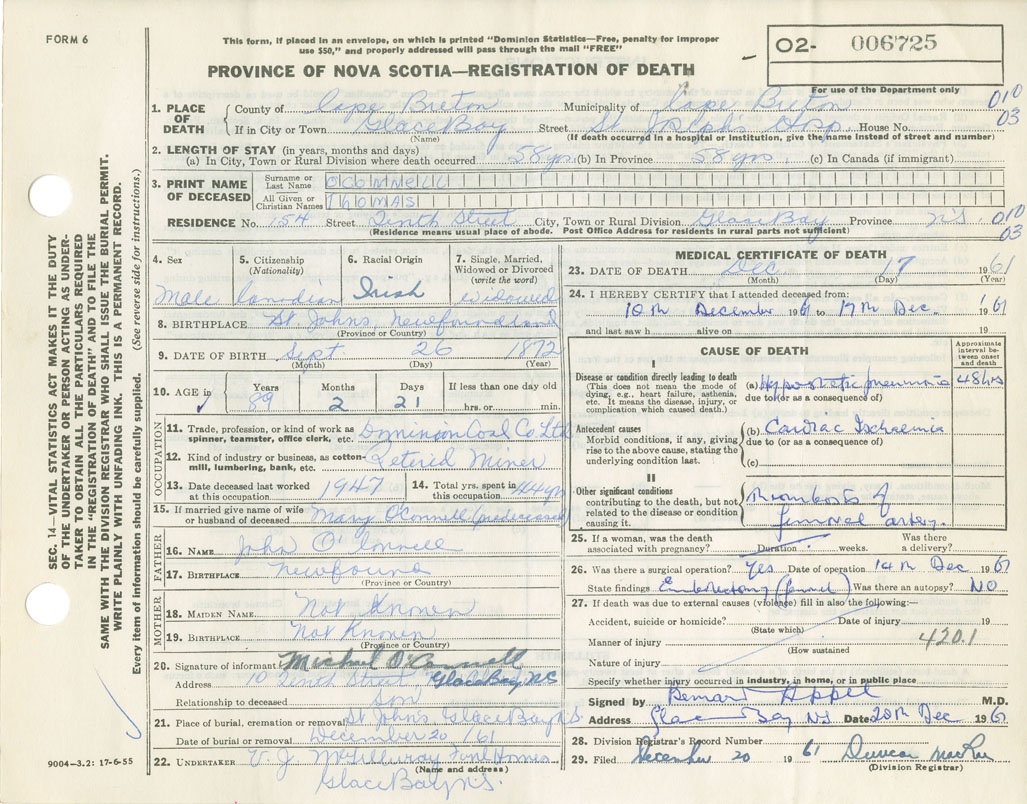 FORM 6
This form, if placed in an envelope, on which is printed "Dominion Statistics—Free, penalty for improper
use $50," and properly addressed will pass through the mail "FREE"
O2- 006725
For use of the Department only
PROVINCE OF NOVA SCOTIA—REGISTRATION OF DEATH
010
03
1. PLACE OF DEATH
County of Cape Breton Municipality of Cape Breton
If in City or Town Glace Bay Street St Josephs Hosp. House No.
(Name) (If death occurred in a hospital or institution, give the name instead of street and number)
2. LENGTH OF STAY (in years, months and days)
(a) In City, Town or Rural Division where death occurred 58 yrs (b) In Province 58 yrs. (c) In Canada (if immigrant)
3. PRINT NAME OF DECEASED
Surname or Last Name OCONNELL
All Given or Christian Names THOMAS
RESIDENCE No. 54 Street Tenth Street City, Town or Rural Division Glace Bay Province NS
010
03
(Residence means usual place of abode. Post Office Address for residents in rural parts not sufficient)
4. Sex
Male
5. Citizenship
(Nationality)
Canadian
6. Racial Origin
Irish
7. Single, Married,
Widowed or Divorced
(write the word)
Widowed
8. BIRTHPLACE St. Johns, Newfoundland
(Province or Country)
9. DATE OF BIRTH Sept 26 1872
(Month) (Day) (Year)
10. AGE in
Years 89
Months 2
Days 21
If less than one day old
hrs. or min.
OCCUPATION
11. Trade, profession, or kind of work as
spinner, teamster, office clerk, etc. Dominion Coal Co Ltd
12. Kind of industry or business, as cotton-
mill, lumbering, bank, etc. Retired Miner
13. Date deceased last worked
at this occupation 1947
14. Total yrs. spent in
this occupation 44 yrs
15. If married give name of wife
or husband of deceased Mary O'Connell (predeceased)
FATHER
16. NAME John O'Connell
17. BIRTHPLACE Newfound
(Province or Country)
MOTHER
18. MAIDEN NAME Not Known
19. BIRTHPLACE Not Known
(Province or Country)
20. Signature of informant Michael O'Connell
Address 10 Tenth Street Glace Bay, N.S
Relationship to deceased Son
21. Place of burial, cremation or removal St Johns Glace Bay N.S.
Date of burial or removal December 20 /61
22. UNDERTAKER V. J. McGillivray Funl Homes
(Name and address)
Glace Bay N.S.
9004—3.2: 17-6-55
MEDICAL CERTIFICATE OF DEATH
23. DATE OF DEATH Dec 17 1961
(Month) (Day) (Year)
24. I HEREBY CERTIFY that I attended deceased from:
10th December 1961 to 17th Dec. 1961
and last saw h alive on 19
CAUSE OF DEATH
Approximate
interval be-
tween onset
and death
I
Disease or condition directly leading to death
(This does not mean the mode of
dying, e.g., heart failure, asthenia,
etc. It means the disease, injury, or
complication which caused death.)
(a) Hypostatic pneumonia 48 hrs
due to (or as a consequence of)
Antecedent causes
Morbid conditions, if any, giving
rise to the above cause, stating the
underlying condition last.
(b) Cardiac Ischaemia
due to (or as a consequence of)
(c)
II
Other significant conditions
contributing to the death, but not
related to the disease or condition
causing it.
Thrombosis of
femoral artery.
25. If a woman, was the death
associated with pregnancy? Duration weeks.
Was there
a delivery?
26. Was there a surgical operation? Yes Date of operation 14th Dec 1961
State findings Embolectomy (femoral) Was there an autopsy? NO
27. If death was due to external causes (violence) fill in also the following:—
Accident, suicide or homicide? Date of injury 19
(State which)
Manner of injury 420.1
(How sustained
Nature of injury
Specify whether injury occurred in industry, in home, or in public place
Signed by Bernard Appel M.D.
Address Glace Bay NS Date 20th Dec 1961
28. Division Registrar's Record Number
29. Filed December 20 1961 Duncan MacRae
(Division Registrar)
SEC. 14—VITAL STATISTICS ACT MAKES IT THE DUTY
OF THE UNDERTAKER OR PERSON ACTING AS UNDER-
TAKER TO OBTAIN ALL THE PARTICULARS REQUIRED
IN THE "REGISTRATION OF DEATH" AND TO FILE THE
SAME WITH THE DIVISION REGISTRAR WHO SHALL ISSUE THE BURIAL PERMIT.
WRITE PLAINLY WITH UNFADING INK. THIS IS A PERMANENT RECORD.
Every item of information should be carefully supplied. (See reverse side for instructions.)